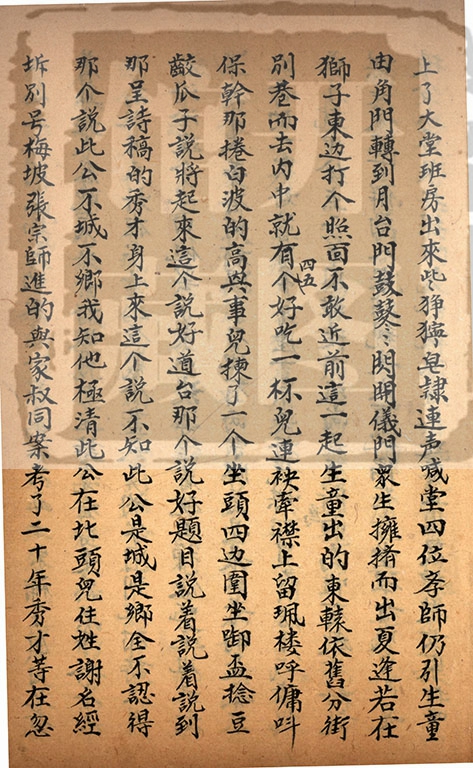 上了大堂班房出來些猙獰皂隷連声喊堂四位孝師仍引生童
由角門轉到月台門鼓鼕〻閃開儀門衆生擁擠而出夏逢若在
獅子東边打个照面不敢近前這一起生童出的東轅依舊分街
別巷而去内中就有四五个好吃一杯兒連袂牽襟上留珮楼呼傭叫
保幹那捲白波的高興事兒揀了一个坐頭四边圍坐啣盃捻豆
齩瓜子說將起來這个說好道台那个說好題目説着説着説到
那呈詩稿的秀才身上來這个說不知此公是城是鄉全不認得
那个說此公不城不鄉我知他極清此公在北頭兒住姓謝名經
圻別号梅坡張宗師進的與家叔同案考了二十年秀才等在忽